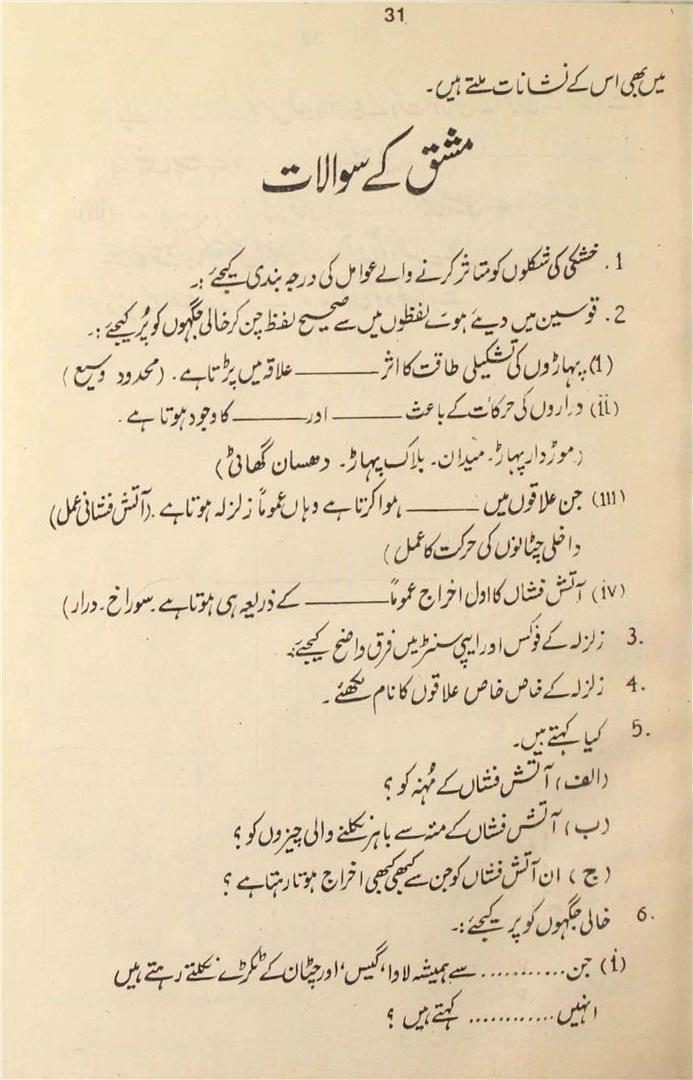 31
میں بھی اس کے نشانات ملتے ہیں۔
مشق کے سوالات
1. خشکی کی شکلوں کو متاثر کرنے والے عوامل کی درجہ بندی کیجئے :۔
2. قوسین میں دیئے ہوئے لفظوں میں سے صحیح لفظ چن کر خالی جگہوں کو پُر کیجئے :۔
(i) پہاڑوں کی تشکیلی طاقت کا اثر ــــــــــ علاقہ میں پڑتا ہے۔ (محدود وسیع)
(ii) دراروں کی حرکات کے باعث ــــــــــ اور ــــــــــ کا وجود ہوتا ہے۔
(موڑدار پہاڑ۔ میدان۔ بلاک پہاڑ۔ دھسان گھاٹی)
(iii) جن علاقوں میں ــــــــــ ہوا کرتا ہے وہاں عموماً زلزلہ ہوتا ہے۔ (آتش فشانی عمل)
داخلی چٹانوں کی حرکت کا عمل)
(iv) آتش فشاں کا اول اخراج عموماً ــــــــــ کے ذریعہ ہی ہوتا ہے۔ سوراخ۔ درار)
3. زلزلہ کے فوکس اور ایپی سنٹر میں فرق واضح کیجئے :۔
4. زلزلہ کے خاص خاص علاقوں کا نام لکھئے۔
5. کیا کہتے ہیں۔
(الف) آتش فشاں کے مُہنہ کو ؟
(ب) آتش فشاں کے منہ سے باہر نکلنے والی چیزوں کو ؟
(ج) ان آتش فشاں کو جن سے کبھی کبھی اخراج ہوتا رہتا ہے ؟
6. خالی جگہوں کو پر کیجئے :۔
(i) جن ........... سے ہمیشہ لاوا، گیس، اور چٹان کے ٹکڑے نکلتے رہتے ہیں
انہیں ............ کہتے ہیں ؟